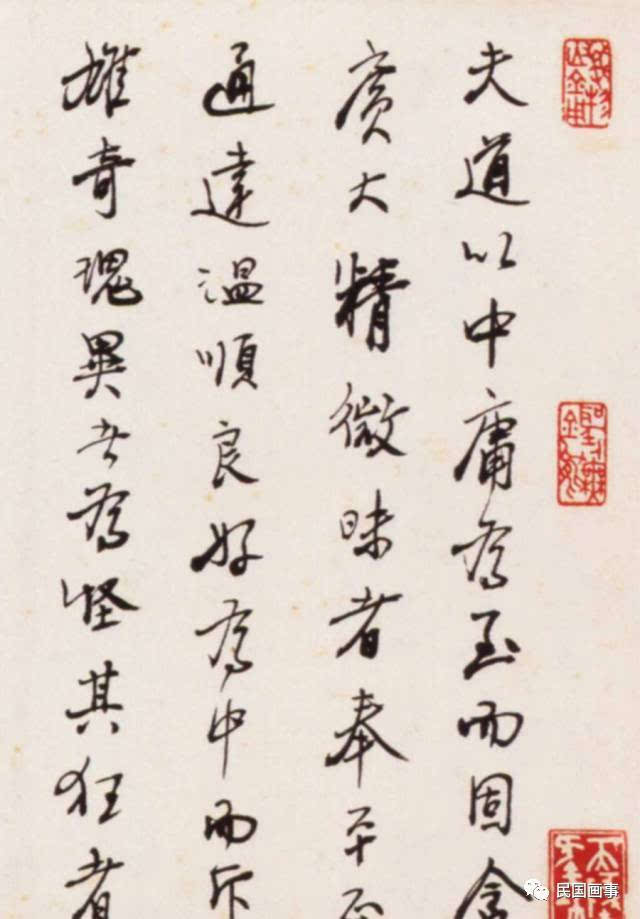 夫道以中庸為至而固含
廣大精微昧者奉平
通達溫順良好為中而斥
雄奇瑰異者為怪其狂者
民国画事